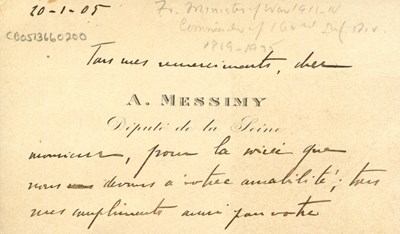 20-1-05
Fr. Minister of War 1911-12
CB0513660200
Commander of 162nd Inf. Div.
1914-1915
Tous mes remerciments, cher
A. MESSIMY
Député de la Seine
monsieur, pour la soirée que
nous devons à votre amabilité; tous
mes compliments aussi pour votre